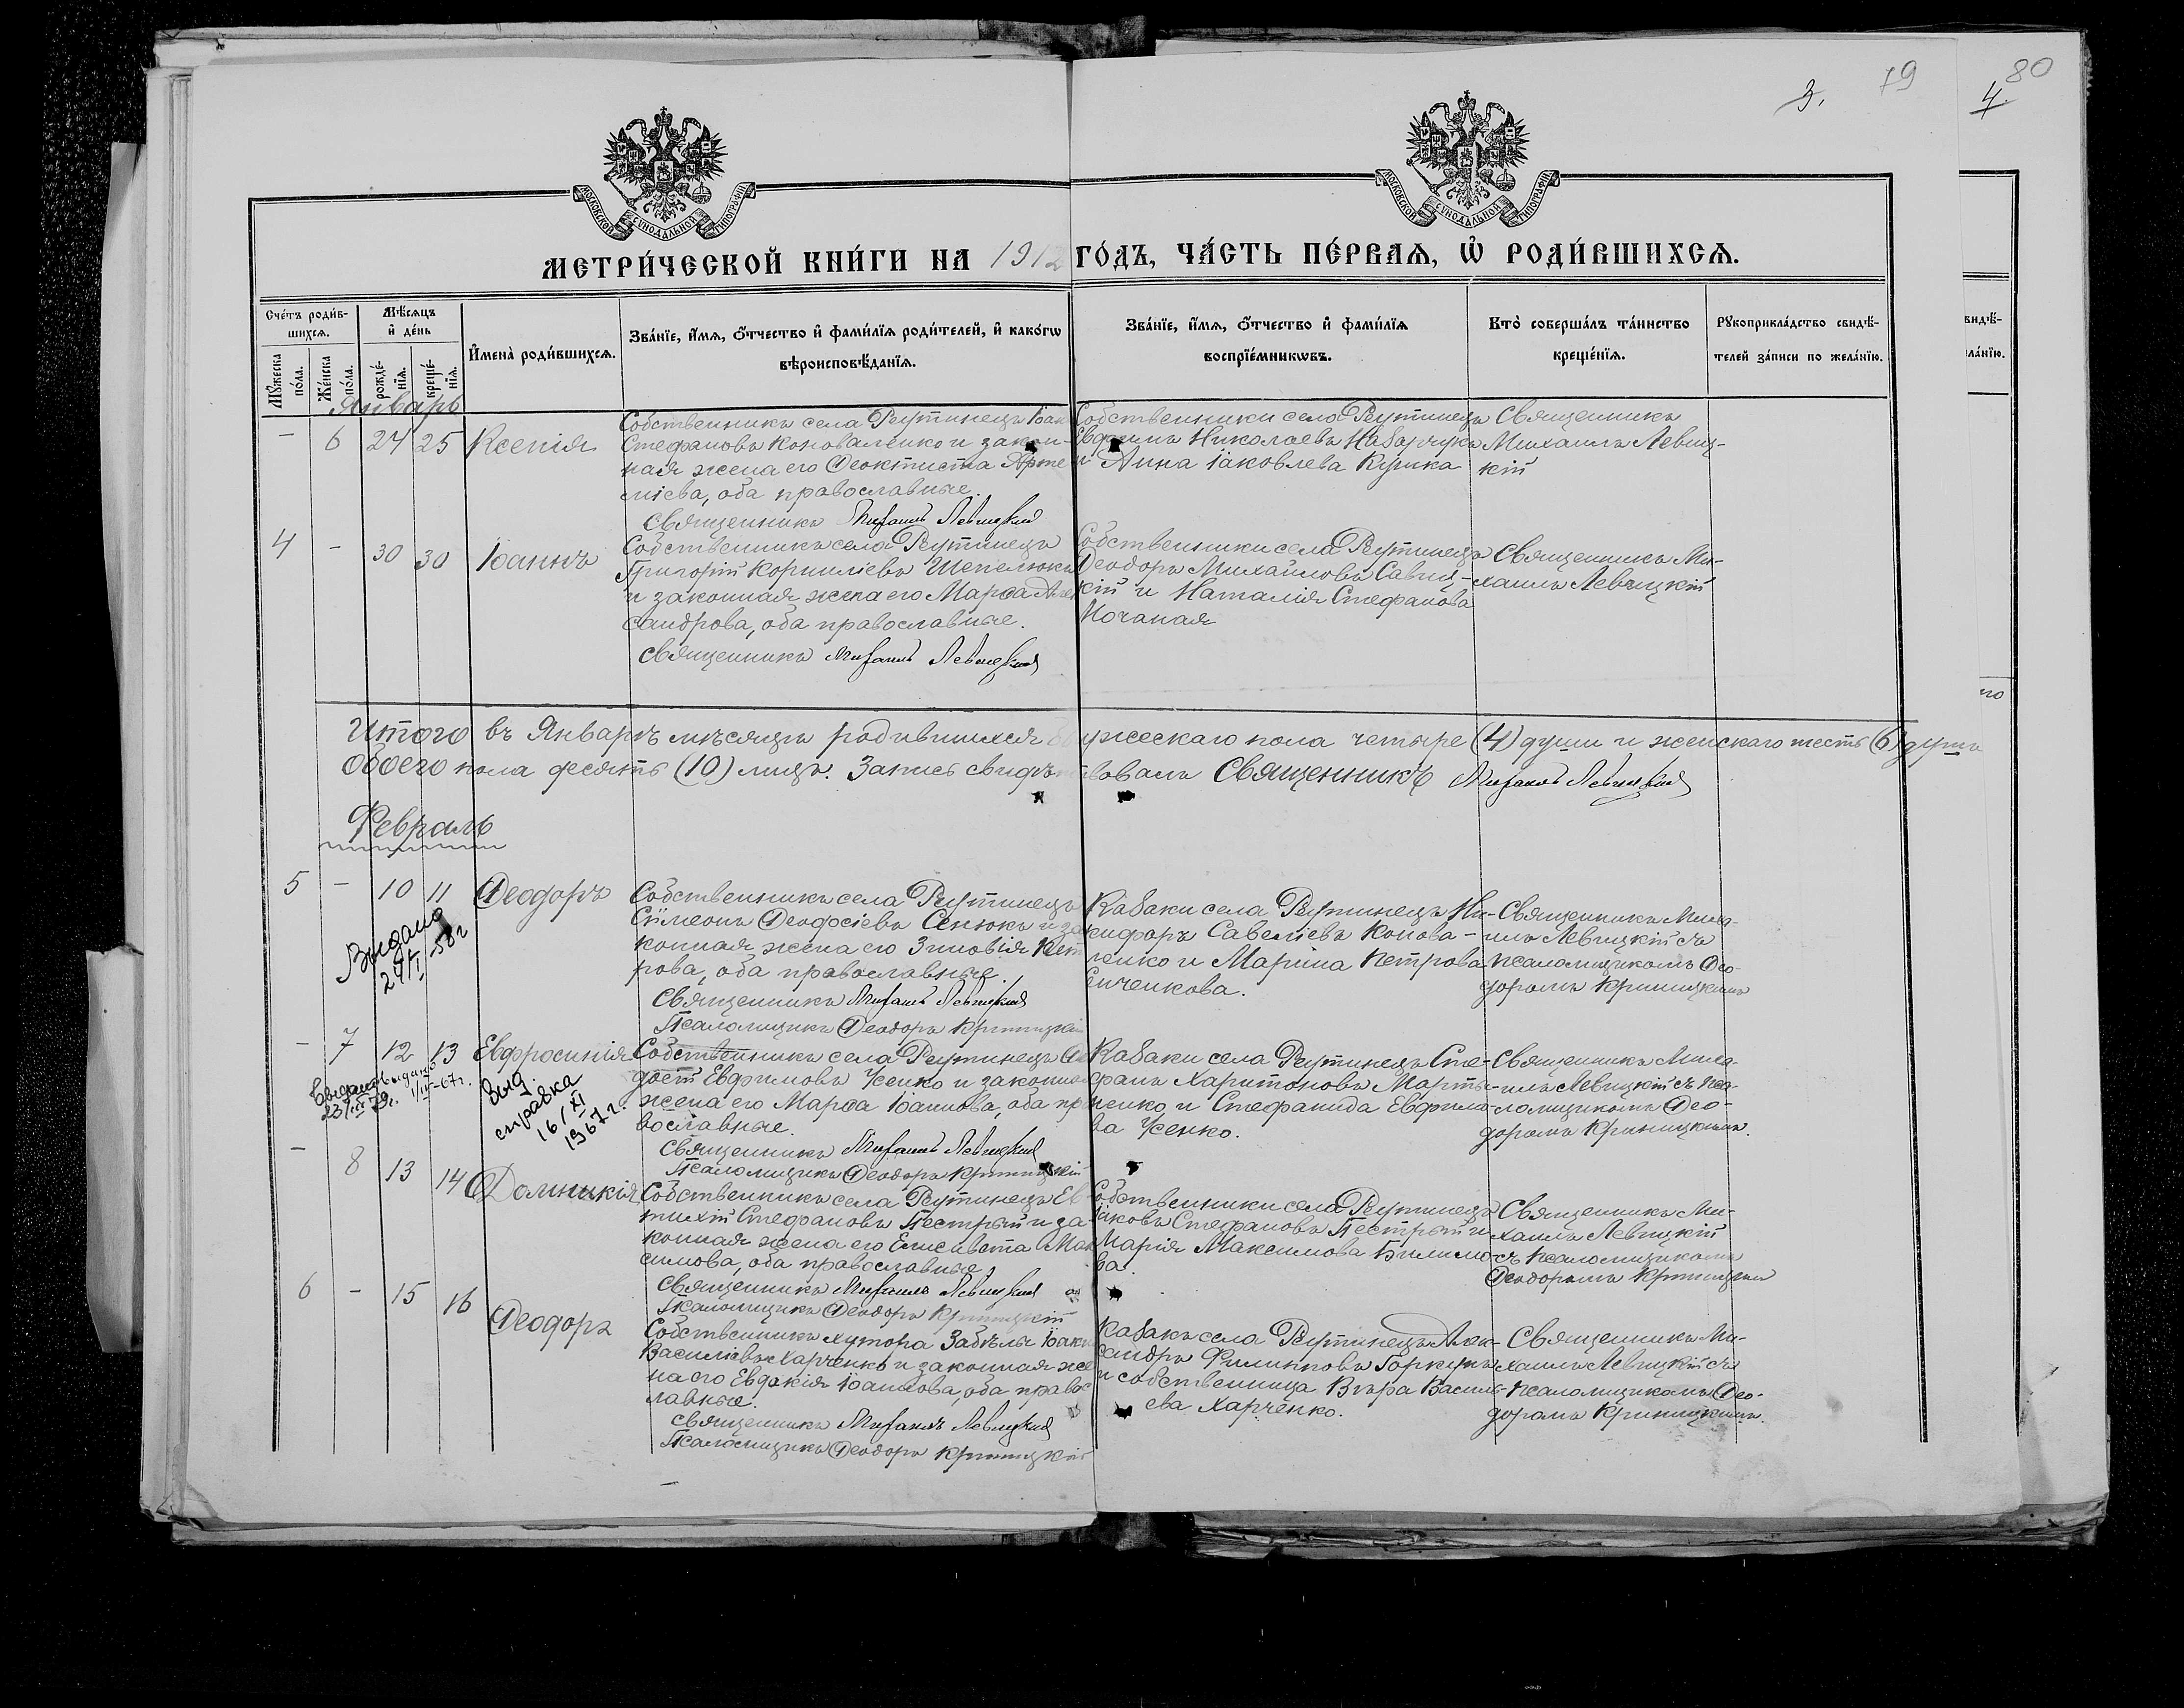 3. 79
80
4.
МОСКОВСКОЙ СѴНОДАЛЬНОЙ ТИПОГРАФІИ
МОСКОВСКОЙ СѴНОДАЛЬНОЙ ТИПОГРАФІИ
МЕТРИ́ЧЕСКОЙ КНИ́ГИ НА 1912 ГО́ДЪ, ЧА́СТЬ ПЕ́РВАѦ, Ѡ҆ РОДИ́ВШИХСѦ.
Сче́тъ роди́в-
шихсѧ.
Мѣ́сѧцъ
и҆ де́нь
Мꙋ́жеска
по́ла.
Же́нска
по́ла.
рожде́-
нїѧ.
креще́-
нїѧ.
И҆мена̀ роди́вшихсѧ.
Зва́нїе, и҆́мѧ, ѻ҆́тчество и҆ фами́лїѧ роди́телей, и҆ како́гѡ
вѣроисповѣ́данїѧ.
Зва́нїе, и҆́мѧ, ѻ҆́тчество и҆ фами́лїѧ
воспрїе́мникѡвъ.
Кто̀ соверша́лъ та́инство
креще́нїѧ.
Рꙋкоприкла́дство свидѣ́-
телей за́писи по жела́нїю.
Январь
- 6 24 25 Ксенія
Собственникъ села Реутинецъ Іоак
Стефановъ Коноваленко и закон-
ная жена его Ѳеоктиста Арте
міева, оба православные.
Священникъ Михаилъ Левицкій
Собственники села Реутинецъ
Евфимъ Николаевъ
и Анна Іаковлева
Священникъ
Михаилъ Левиц-
кій
4 - 30 30 Іоаннъ
Собственникъ села Реутинецъ
Григорій Корниліевъ Шепелюкъ
и законная жена его Марѳа Алек
сандрова, оба православные.
Священникъ Михаилъ Левицкій
Собственники села Реутинецъ
Ѳеодоръ Михаиловъ Савиц-
кій и Наталія Стефанова
Мочаная
Священникъ Ми-
хаилъ Левицкій
Итого въ Январѣ мѣсяцѣ родившихся мужескаго пола четыре (4) души и женскаго шесть (6) душъ
обоего пола десять (10) лицъ. Запись свидѣтельствовалъ Священникъ Михаилъ Левицкій
Февраль
5 - 10 11 Ѳеодоръ
Выдано
29/I-58г
Собственникъ села Реутинецъ
Сѵмеонъ Ѳеодосіевъ Сенюкъ и за
конная жена его Зиновія Пет
рова, оба православные.
Священникъ Михаилъ Левицкій
Псаломщикъ Ѳеодоръ Криницкій
Казаки села Реутинецъ Ни-
кифоръ Савеліевъ Конова-
ленко и Марина Петрова
Сенченкова.
Священникъ Миха-
илъ Левицкій съ
псаломщикомъ Ѳео-
доромъ Криницкимъ
- 7 12 13 Евфросинія
выдано
1/IV-67г.
выд.
справка
16/XI
1967г.
Собственникъ села Реутинецъ
Евфимовъ Усенко и законная
жена его Марѳа Іоаннова, оба пра
вославные.
Священникъ Михаилъ Левицкій
Псаломщикъ Ѳеодоръ Криницкій
Казаки села Реутинецъ Сте-
фанъ Харитоновъ Марты-
ненко и Стефанида Евфимо-
ва Усенко.
Священникъ Миха-
илъ Левицкій съ пса-
ломщикомъ Ѳео-
доромъ Криницкимъ.
- 8 13 14 Домникія
Собственникъ села Реутинецъ Ев
тихій Стефановъ Пестрый и за-
конная жена его Елисавета Мак
симова, оба православные.
Священникъ Михаилъ Левицкій
Псаломщикъ Ѳеодоръ Криницкій
Собственники села Реутинецъ
Іаковъ Стефановъ Пестрый и
Марія Максимова Билимо-
ва.
Священникъ Ми-
хаилъ Левицкій
съ псаломщикомъ
Ѳеодоромъ Криницкимъ
6 - 15 16 Ѳеодоръ
Собственникъ хутора Забѣлы Іаки
Василіевъ Харченко и законная же
на его Евдокія Іоаннова, оба правос
лавные.
Священникъ Михаилъ Левицкій
Псаломщикъ Ѳеодоръ Криницкій
Казакъ села Реутинецъ Алек-
сандръ Филипповъ Горкунъ
и собственница Вѣра Василі-
ева Харченко.
Священникъ Ми-
хаилъ Левицкій съ
псаломщикомъ Ѳео-
доромъ Криницкимъ.